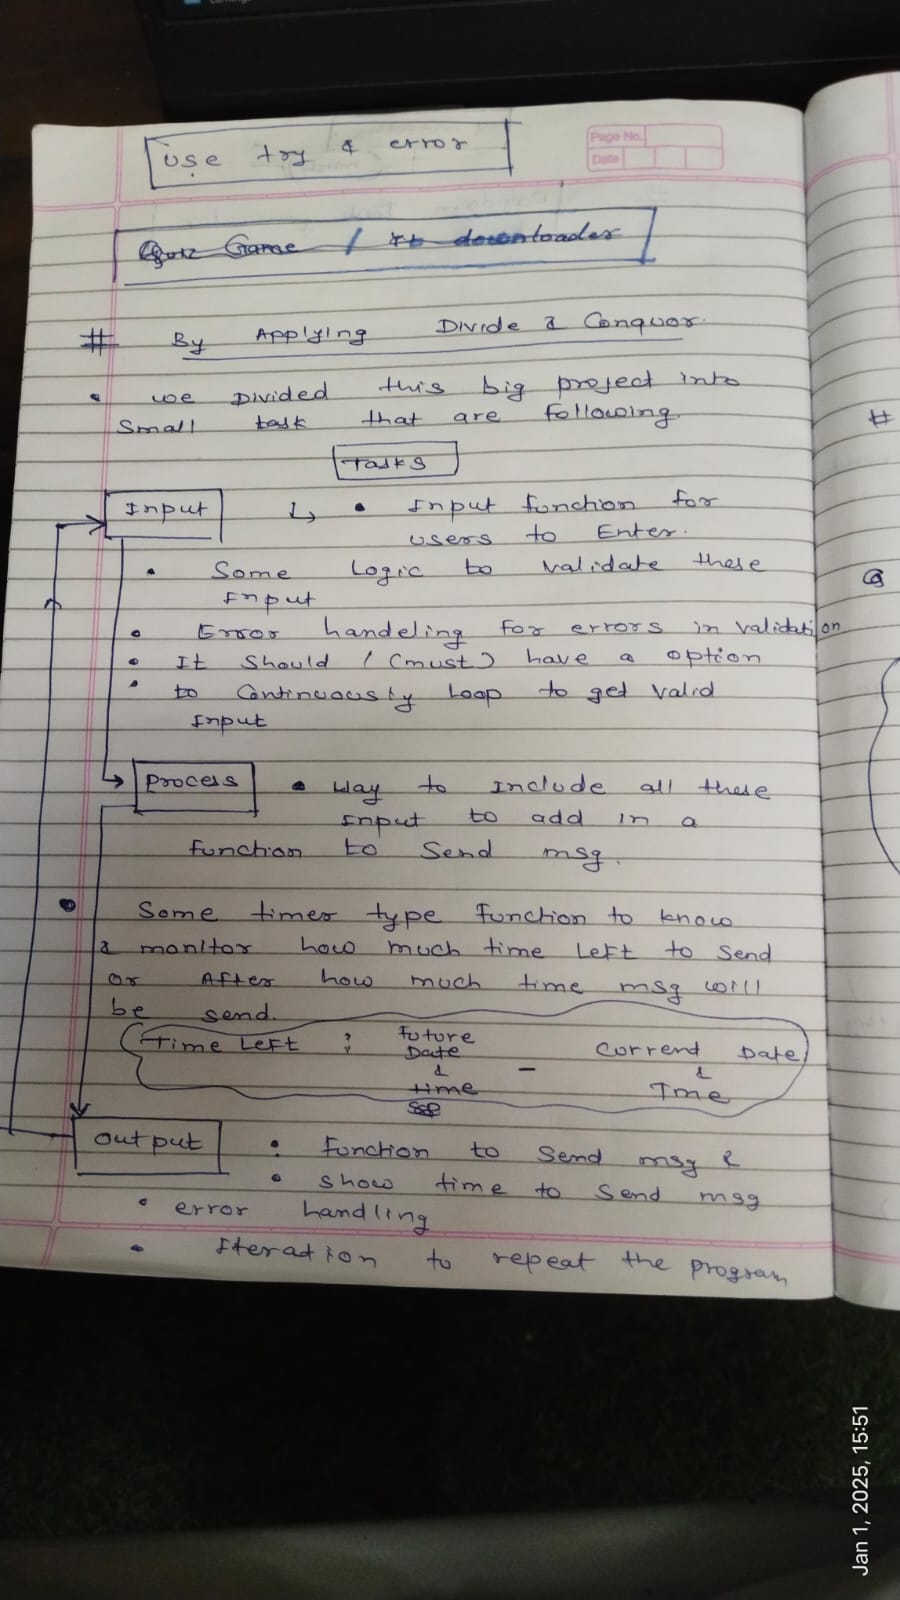 use try & error
Page No.
Date
Quiz Game / Yt downloader
# By Applying Divide & Conquor
• we Divided this big project into
Small task that are following.
Tasks
Input ↳ • Input function for
users to Enter.
• Some Logic to validate these
Input
• Error handeling for errors in validation
• It should / (must) have a option
• to Continuously Loop to get valid
Input
Process • Way to include all these
Input to add in a
function to Send msg.
• Some timer type function to know
& monitor how much time left to send
or After how much time msg will
be send.
Time Left : Future Date & time - Current Date & Tme
Output • function to Send msg &
• show time to Send msg
• error handling
• Iteration to repeat the program
#
Q
Jan 1, 2025, 15:51